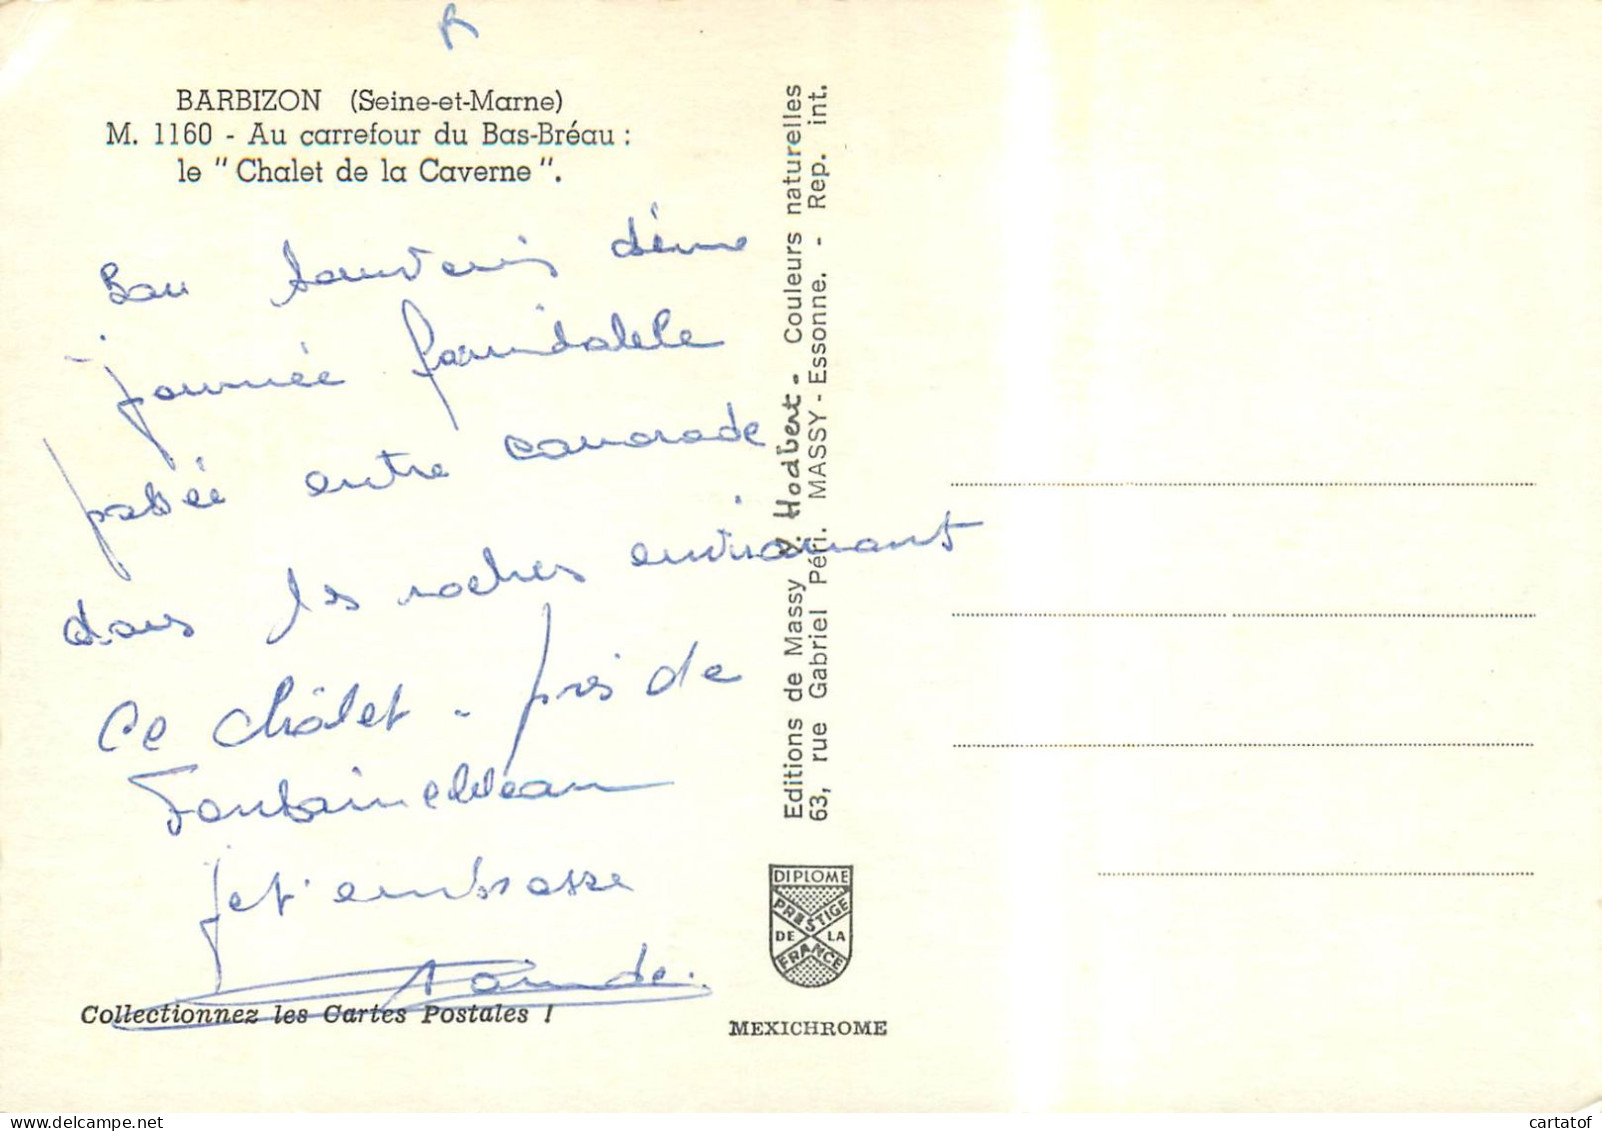 BARBIZON (Seine-et-Marne)
M. 1160 - Au carrefour du Bas-Bréau :
le " Chalet de la Caverne ".
Bon souvenir d'une
journée formidable
passée entre camarade
dans les roches environnant
ce châlet - près de
Fontainebleau
Je t'embrasse
Collectionnez les Cartes Postales !
Editions de Massy J. Hodbert - Couleurs naturelles
63, rue Gabriel Péri. MASSY - Essonne. - Rep. int.
DIPLOME
PRESTIGE
DE LA
FRANCE
MEXICHROME
cartatof